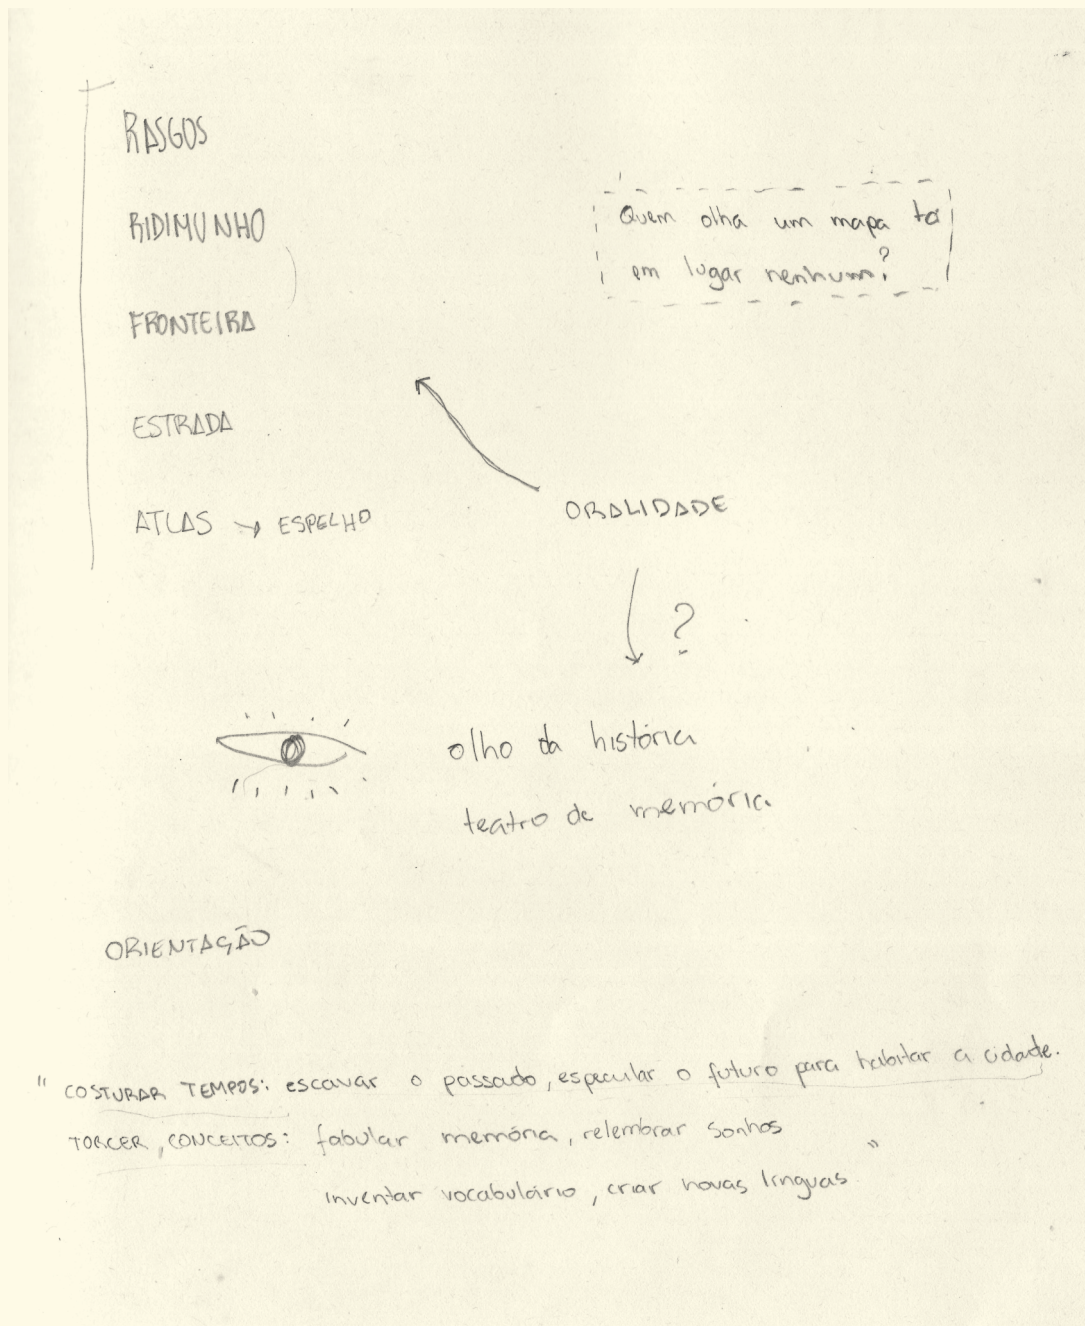 RASGOS
RIDIMUNHO
FRONTEIRA
ESTRADA
ATLAS → ESPELHO
Quem olha um mapa tá
em lugar nenhum?
ORALIDADE
?
olho da história
teatro de memória
ORIENTAÇÃO
" COSTURAR TEMPOS: escavar o passado, especular o futuro para habitar a cidade.
TORCER, CONCEITOS: fabular memória, relembrar sonhos
inventar vocabulário, criar novas línguas "